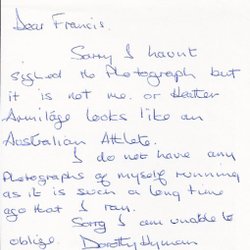 Dear Francis.
Sorry I havnt
signed the Photograph but
it is not me. or Heather
Armitage looks like an
Australian Athlete.
I do not have any
Photographs of myself running
as it is such a long time
ago that I ran.
Sorry I am unable to
oblige. Dorothy Hyman